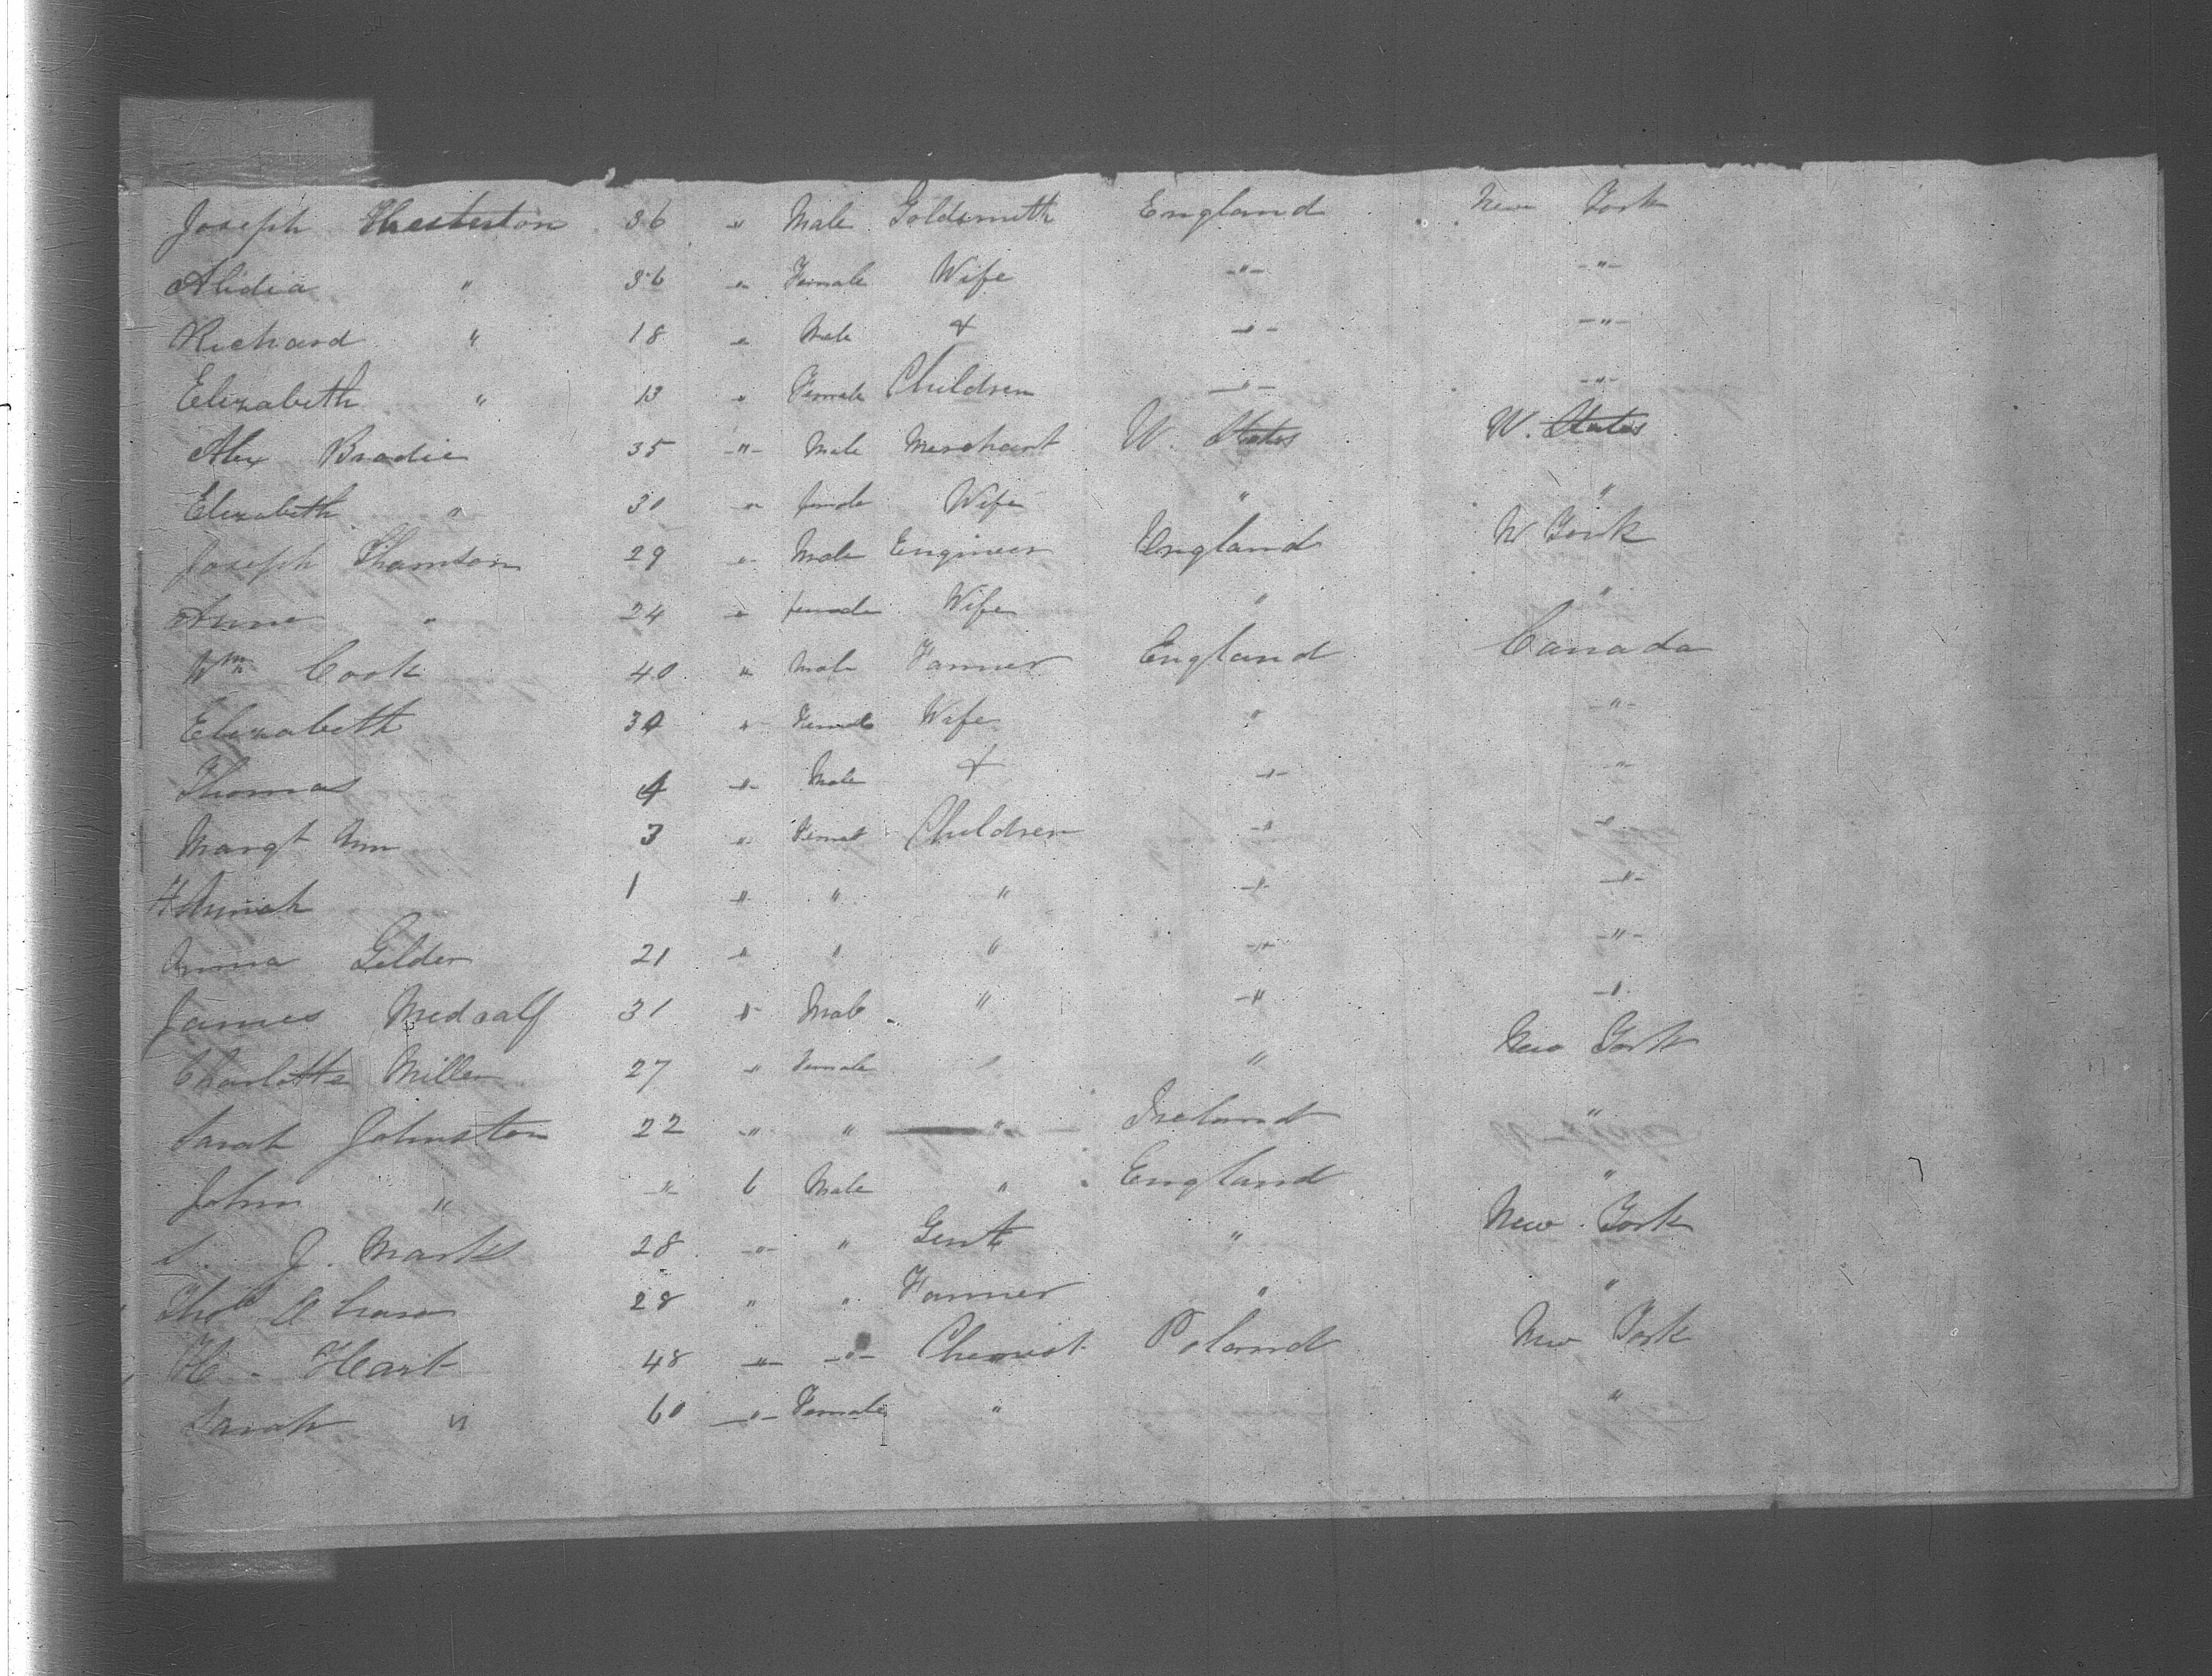 Joseph Thesterton 36 " Male Goldsmith England New York
Alidia " 36 " Female Wife " "
Richard " 18 " Male & " "
Elizabeth " 13 " Female Children " "
Alex Bradie 35 " Male Merchant W. States W. States
Elizabeth " 30 " female Wife " "
Joseph Thomson 29 " Male Engineer England N York
Anne " 24 " female Wife " "
Wm Cook 40 " Male Farmer England Canada
Elizabeth 34 " Female Wife " "
Thomas 4 " Male & " "
Margt Ann 3 " Female Children " "
Hannah 1 " " " " "
Anna Gelder 21 " " " " "
James Medcalf 31 " Male " " "
Charlotte Miller 27 " Female " " New York
Sarah Johnston 22 " " " Ireland "
John " " 6 Male " England "
J. Marks 28 " " Gent " New York
Thos 28 " " Farmer " "
H. Heart 48 " " Chemist Poland New York
Sarah " 60 " Female " "